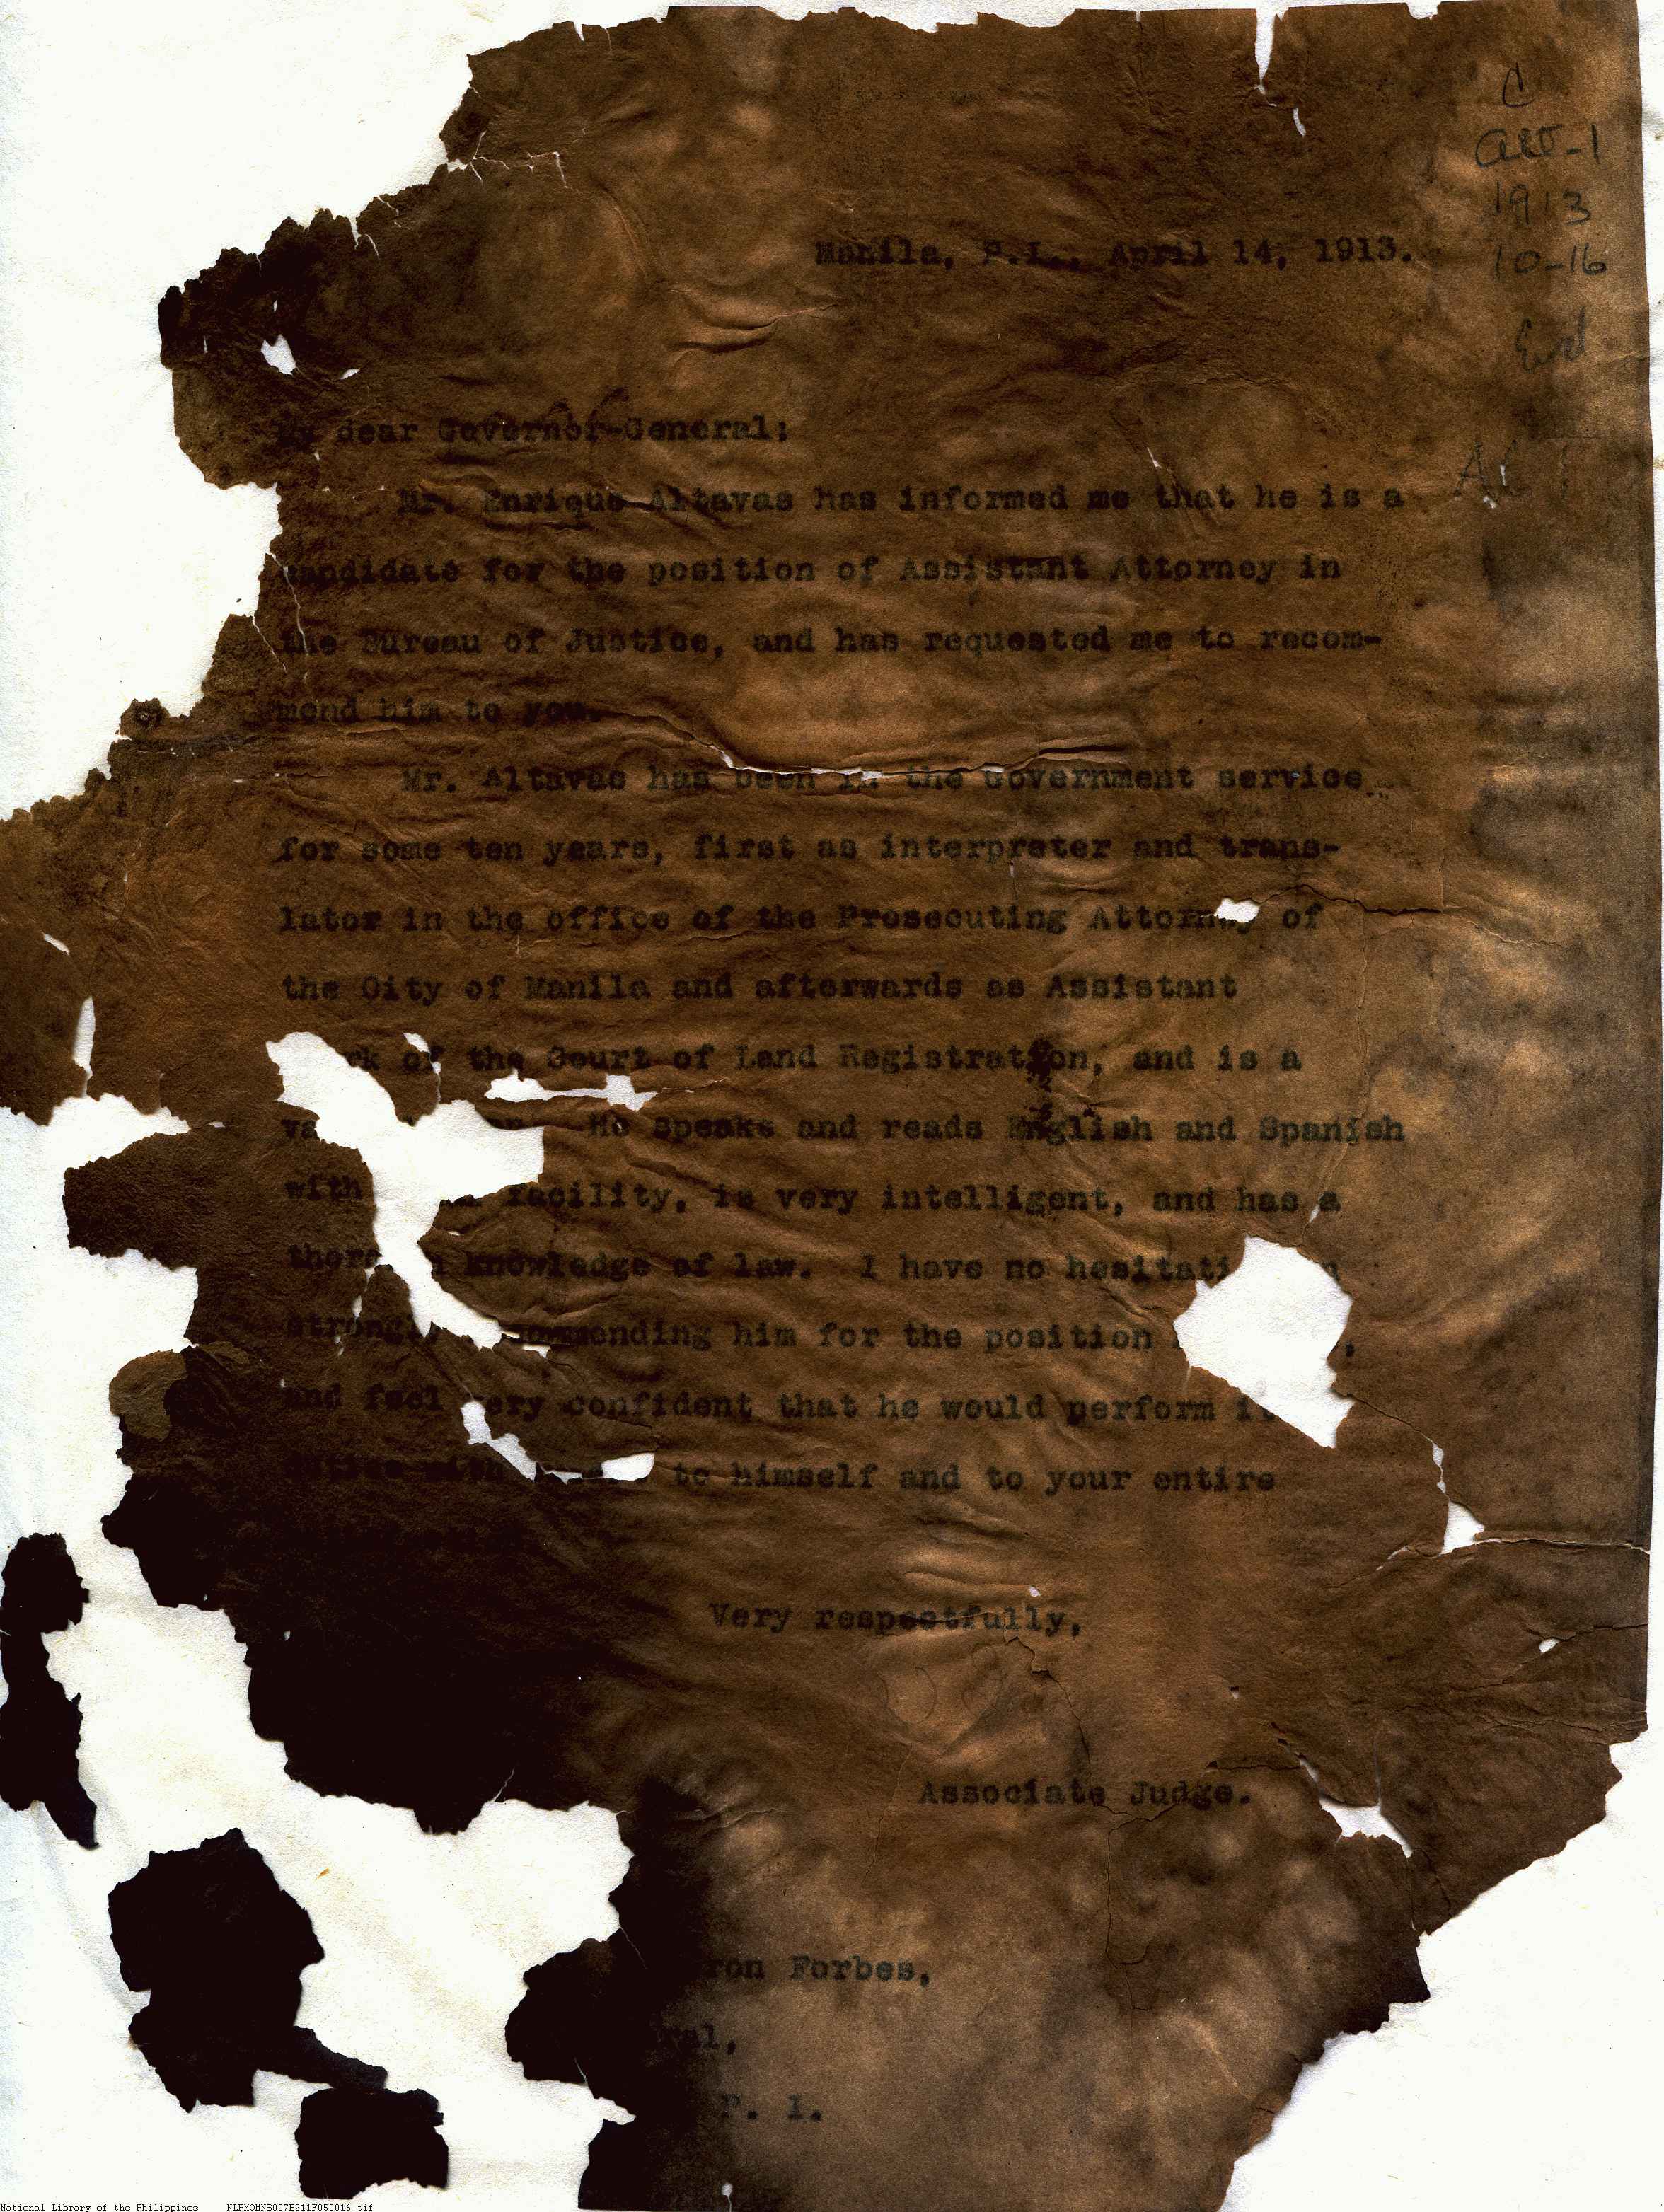 C
1913
10-16
Manila, P.I., April 14, 1913.
My dear Governor-General:
Mr. Enrique Altavas has informed me that he is a
candidate for the position of Assistant Attorney in
the Bureau of Justice, and has requested me to recom-
mend him to you.
Mr. Altavas has been in the Government service
for some ten years, first as interpreter and trans-
lator in the office of the Prosecuting Attorney of
the City of Manila and afterwards as Assistant
rk of the Court of Land Registration, and is a
va He speaks and reads English and Spanish
with facility, is very intelligent, and has a
thoro knowledge of law. I have no hesitati
strongly mmending him for the position
and feel very confident that he would perform
duties with to himself and to your entire
Very respectfully,
Associate Judge.
ron Forbes,
ral,
P. I.
National Library of the Philippines NLPMQMNS007B211F050016.tif